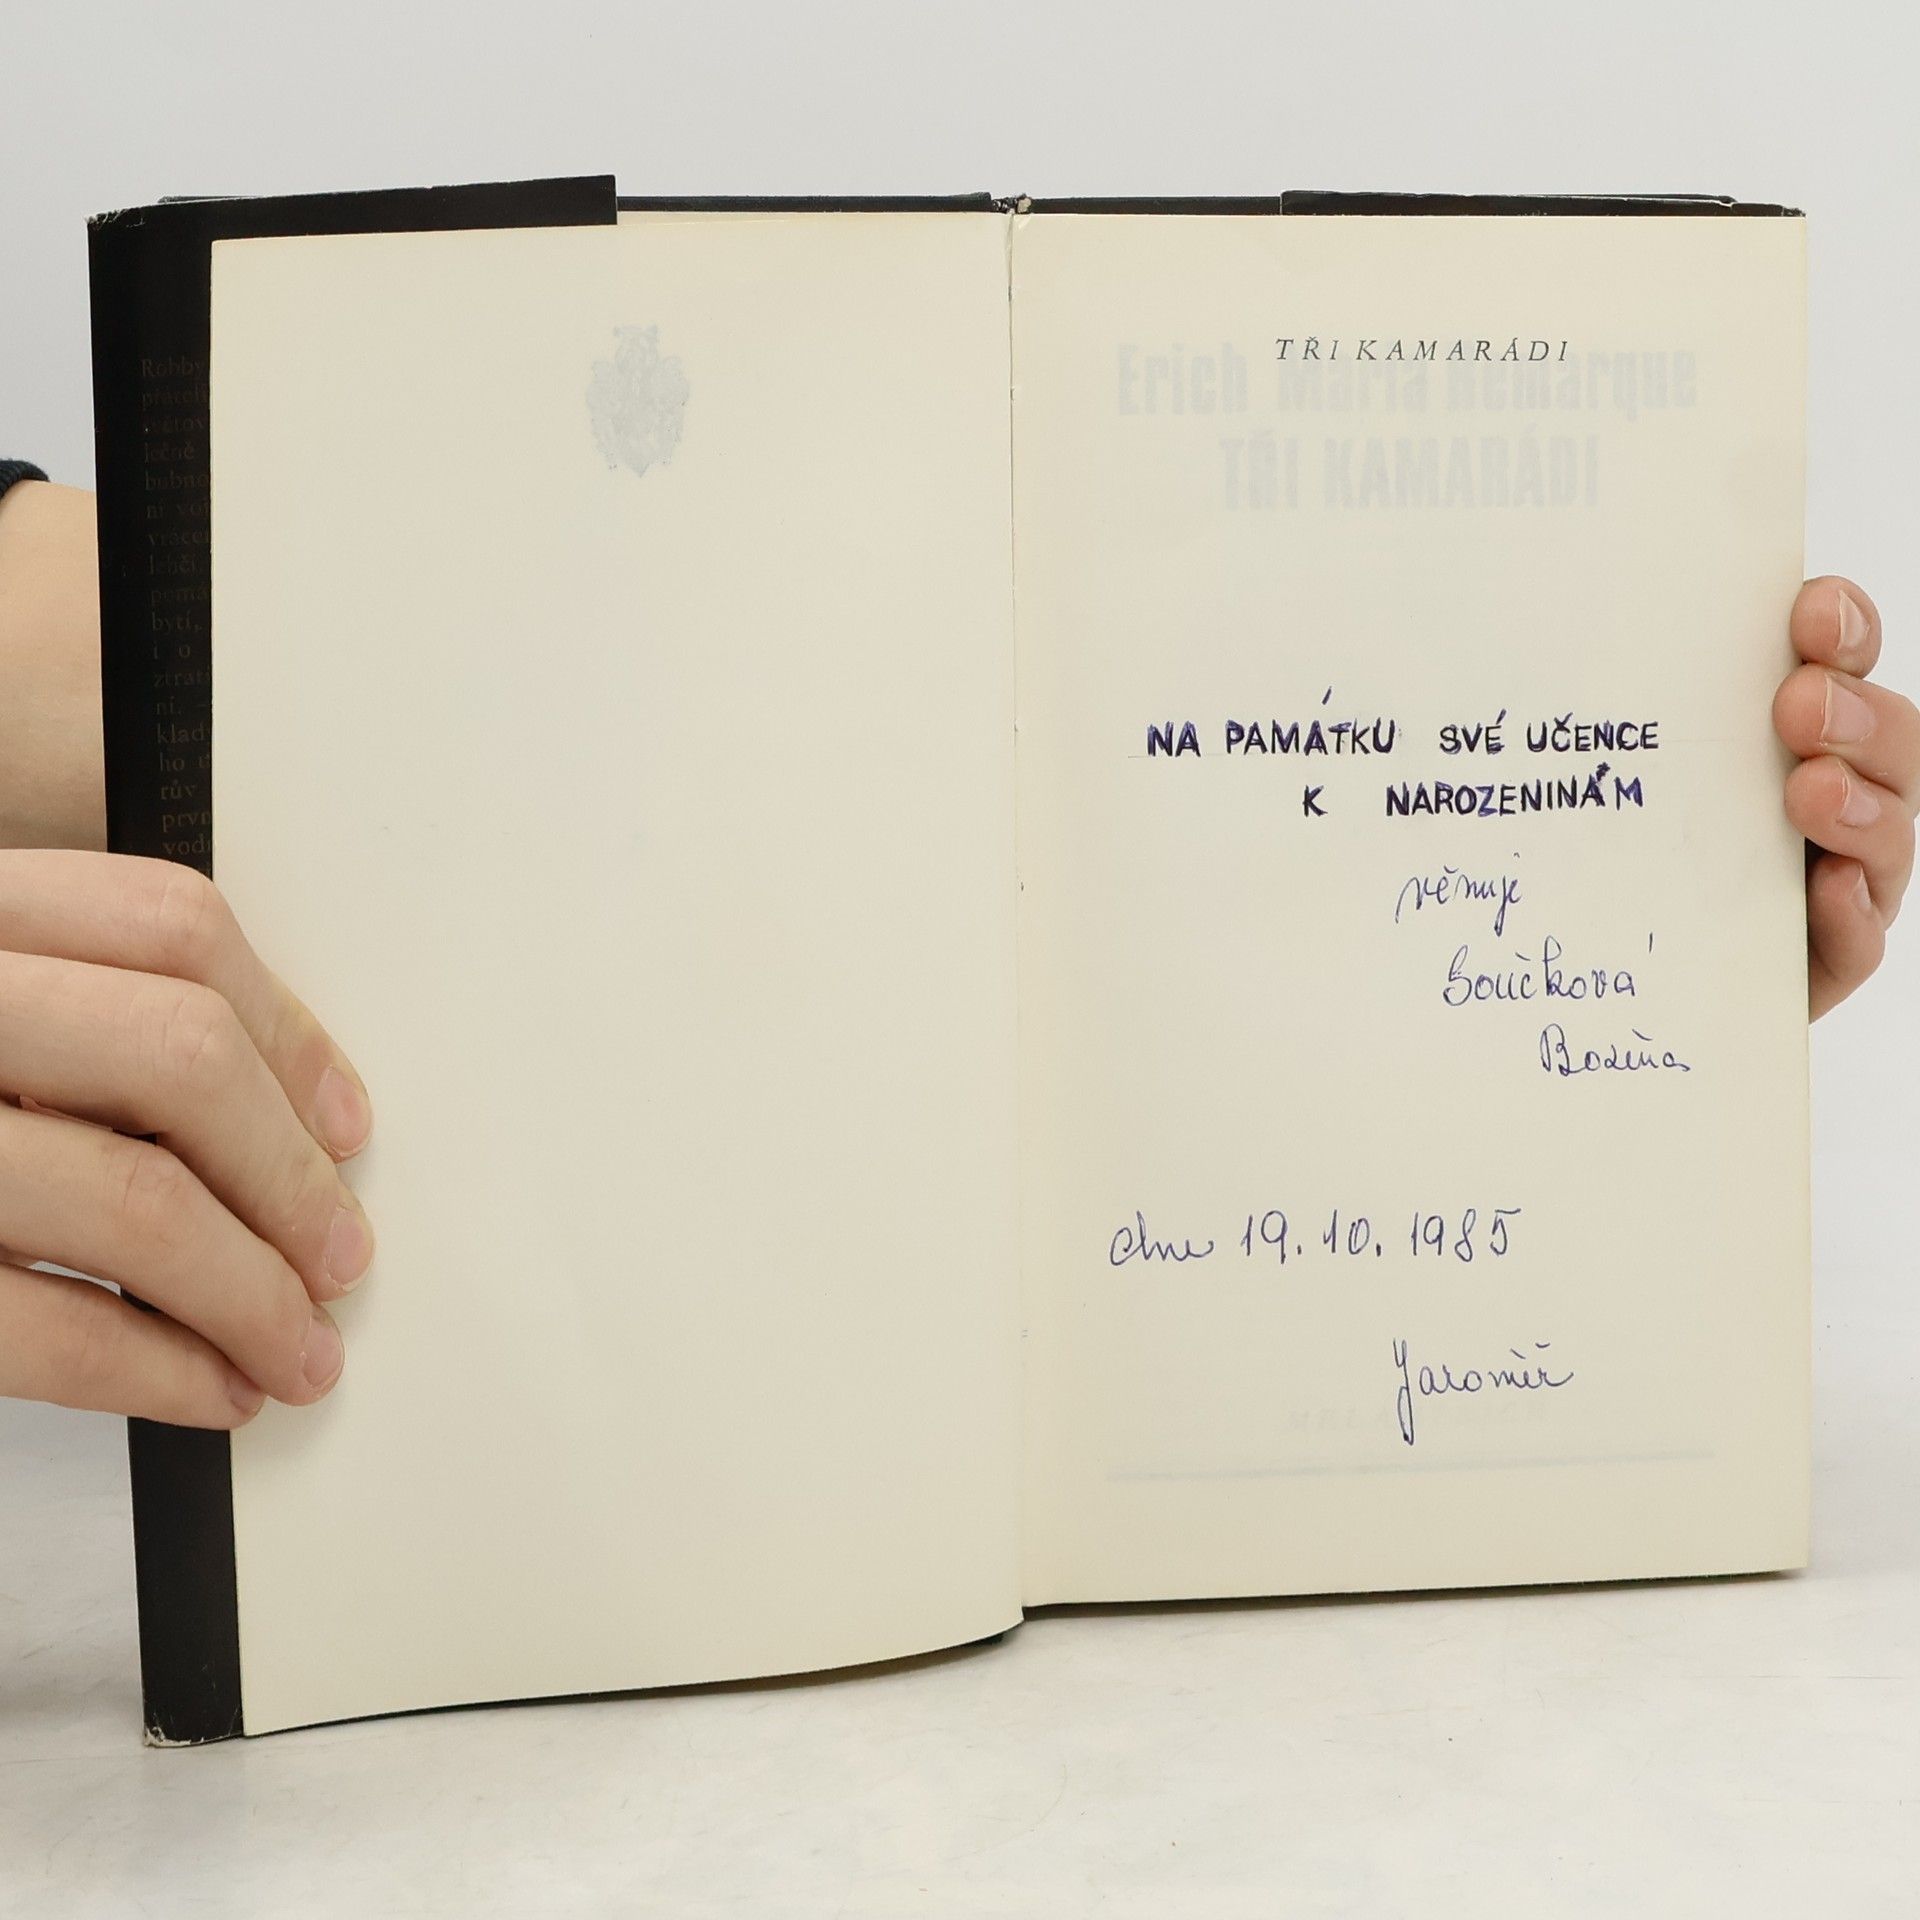 Robby
přátel
světov
lečně
bubno
ní voj
vrácen
lehčí,
pomá
bytí,
i o
ztrati
ní. –
klad
ho ú
rův
prvn
vodn
TŘI KAMARÁDI
Erich Maria Remarque
TŘI KAMARÁDI
NA PAMÁTKU SVÉ UČENCE
K NAROZENINÁM
věnuje
Součková
Božena
dne 19. 10. 1985
Jaroměř